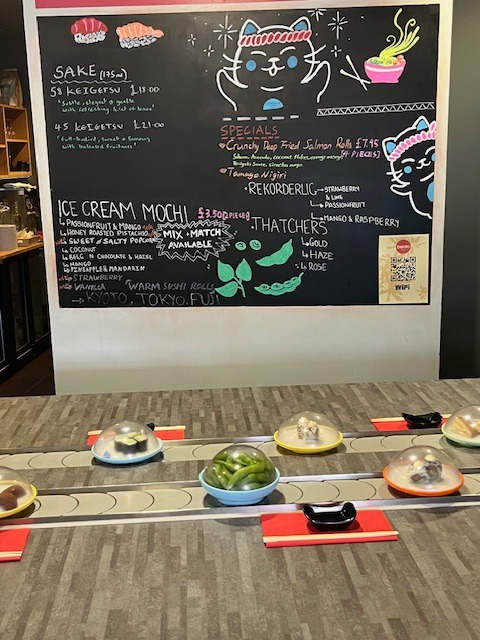 SAKE (175ml)
58 KEIGETSU £18.00
"Subtle, elegant & gentle
with refreshing hint of lemon"
45 KEIGETSU £21.00
"full-bodied, sweet & savoury
with balanced fruitiness"
SPECIALS
Crunchy Deep Fried Salmon Rolls £7.95
Salmon, Avocado, coconut flakes, orange mayo,
[4 PIECES]
Teriyaki Sauce, sriracha mayo
Tamago Nigiri
REKORDERLIG → STRAWBERRY
& LIME
PASSIONFRUIT
MANGO & RASPBERRY
ICE CREAM MOCHI £3.50 [2 PIECES]
PASSIONFRUIT & MANGO
HONEY ROASTED PISTACHIO
SWEET N' SALTY POPCORN
COCONUT
BELG N CHOCOLATE & HAZEL
MANGO
PINEAPPLE & MANDARIN
STRAWBERRY
VANILLA
MIX + MATCH
AVAILABLE
THATCHERS
GOLD
HAZE
ROSE
WARM SUSHI ROLLS
→ KYOTO, TOKYO, FUJI
WiFi